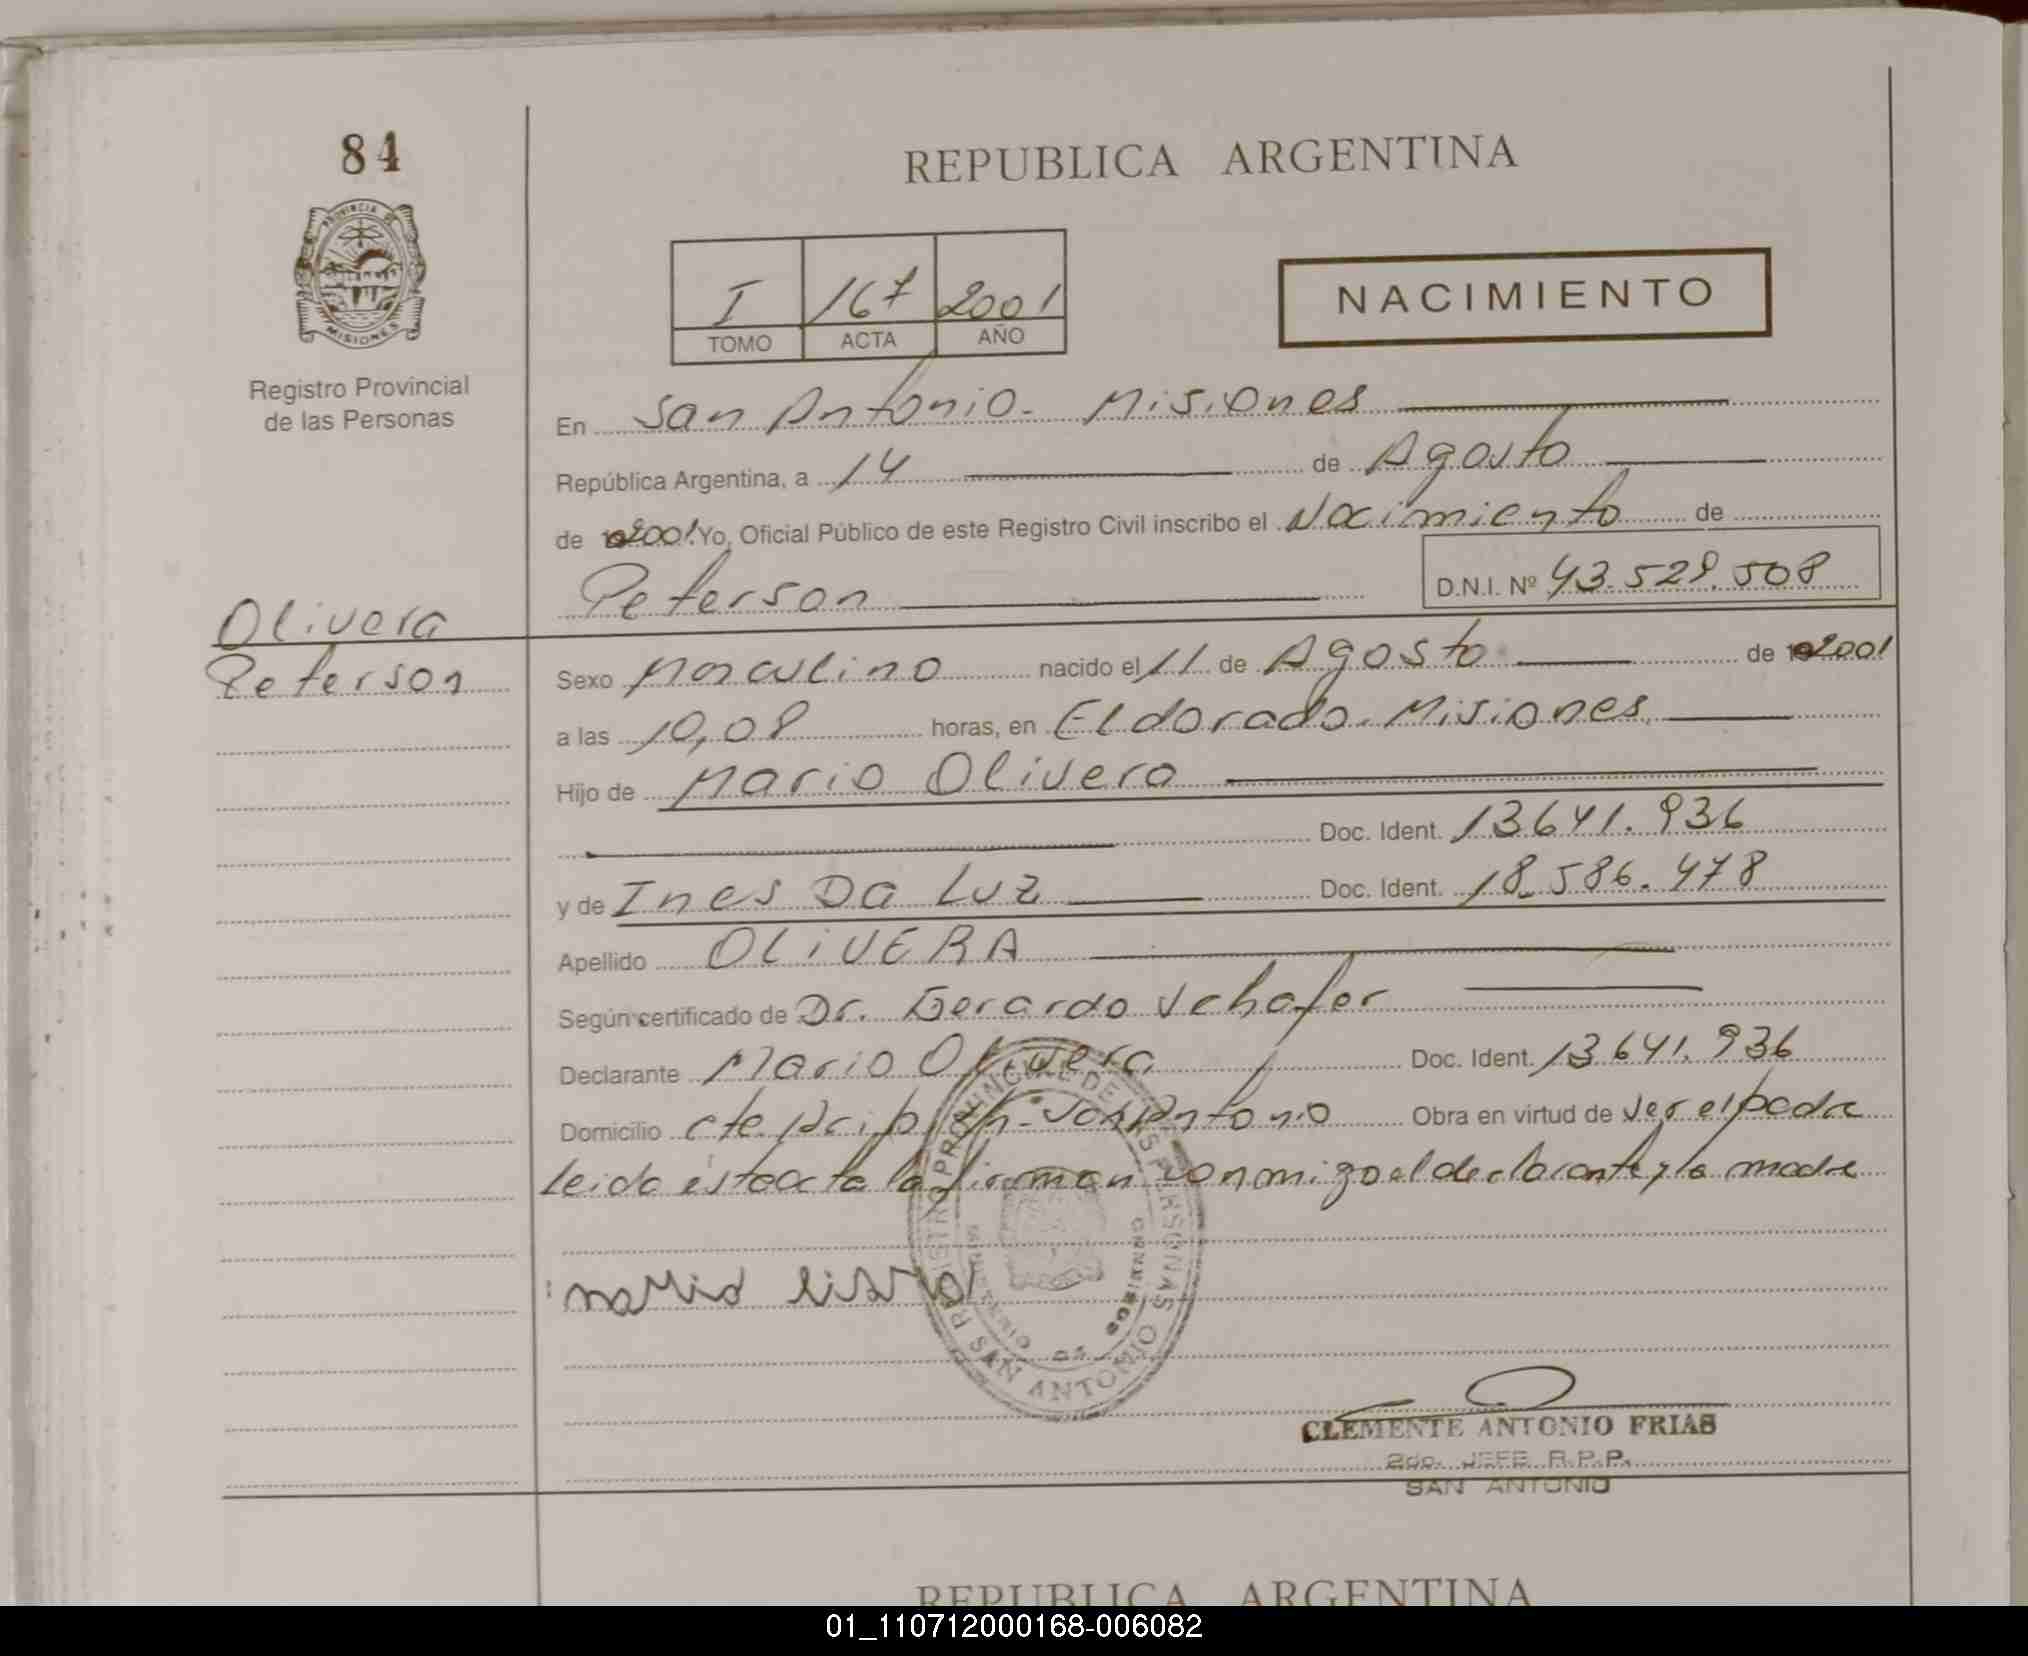 84
REPUBLICA ARGENTINA
PROVINCIA DE
MISIONES
Registro Provincial
de las Personas
I 167 2001
TOMO ACTA AÑO
NACIMIENTO
En San Antonio - Misiones
República Argentina, a 14 de Agosto
de 2001 Yo, Oficial Público de este Registro Civil inscribo el Nacimiento de
Peterson D.N.I. Nº 43.529.508
Olivera
Peterson
Sexo Masculino nacido el 11 de Agosto de 2001
a las 10,08 horas, en Eldorado. Misiones
Hijo de Mario Olivera
Doc. Ident. 13641.936
y de Ines Da Luz Doc. Ident. 18.586.478
Apellido OLIVERA
Según certificado de Dr. Gerardo Schafer
Declarante Mario Olivera Doc. Ident. 13641.936
Domicilio San Antonio Obra en virtud de ser el padre
Leida esta acta la firman conmigo el declarante y la madre
REGISTRO PROVINCIAL DE LAS PERSONAS
SAN ANTONIO
CLEMENTE ANTONIO FRIAS
2do. JEFE R.P.P.
SAN ANTONIO
REPUBLICA ARGENTINA
01_110712000168-006082